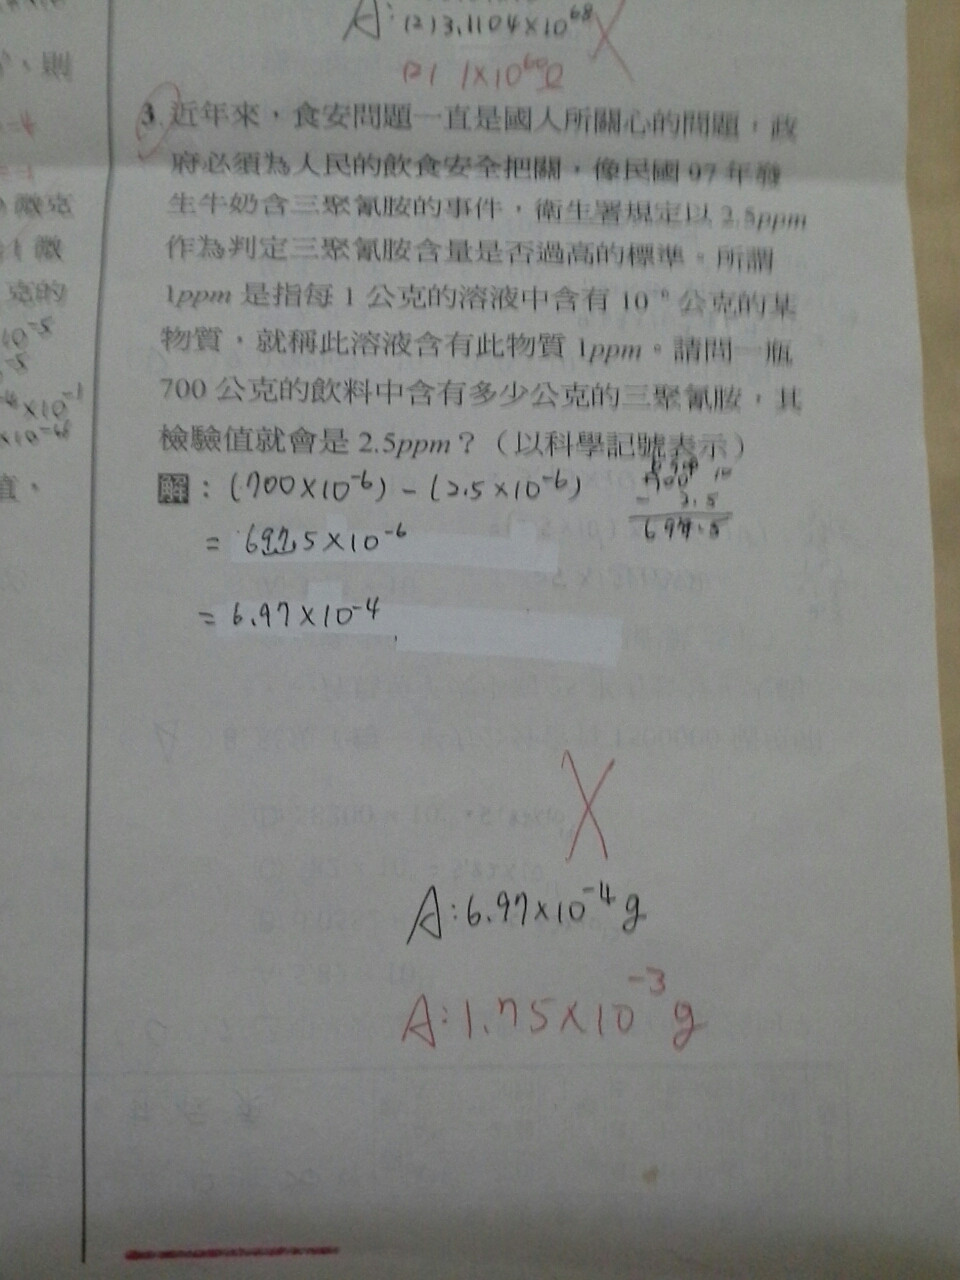 A:(2)3.1104×10⁶⁸
(2) 1×10⁶⁰
、則
3. 近年來，食安問題一直是國人所關心的問題，政
府必須為人民的飲食安全把關，像民國 97 年發
生牛奶含三聚氰胺的事件，衛生署規定以 2.5ppm
作為判定三聚氰胺含量是否過高的標準。所謂
1ppm 是指每 1 公克的溶液中含有 10⁻⁶ 公克的某
物質，就稱此溶液含有此物質 1ppm。請問一瓶
700 公克的飲料中含有多少公克的三聚氰胺，其
檢驗值就會是 2.5ppm？（以科學記號表示）
解：(700×10⁻⁶)－(2.5×10⁻⁶)
= 697.5×10⁻⁶
= 6.97×10⁻⁴
700
- 2.5
697.5
A:6.97×10⁻⁴g
A:1.75×10⁻³g
微克
克的